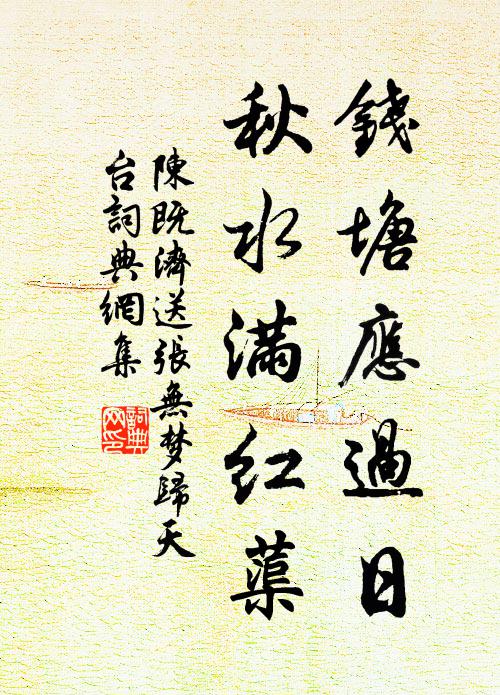 錢塘應過日
秋水滿紅蕖
陳既濟送張無梦歸天
台詞典網集
詞典
网印